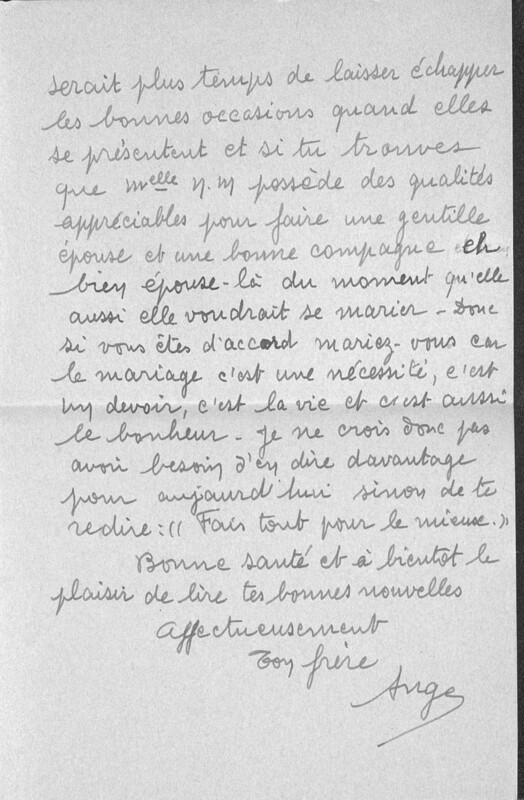 serait plus temps de laisser échapper
les bonnes occasions quand elles
se présentent et si tu trouves
que Melle N. M possède des qualités
appréciables pour faire une gentille
épouse et une bonne compagne eh
bien épouse-là du moment qu'elle
aussi elle voudrait se marier - Donc
si vous êtes d'accord mariez-vous car
le mariage c'est une nécessité, c'est
un devoir, c'est la vie et c'est aussi
le bonheur - Je ne crois donc pas
avoir besoin d'en dire davantage
pour aujourd'hui sinon de te
redire : (( Fais tout pour le mieux. ))
Bonne santé et à bientôt le
plaisir de lire tes bonnes nouvelles
Affectueusement
Ton frère
Ange